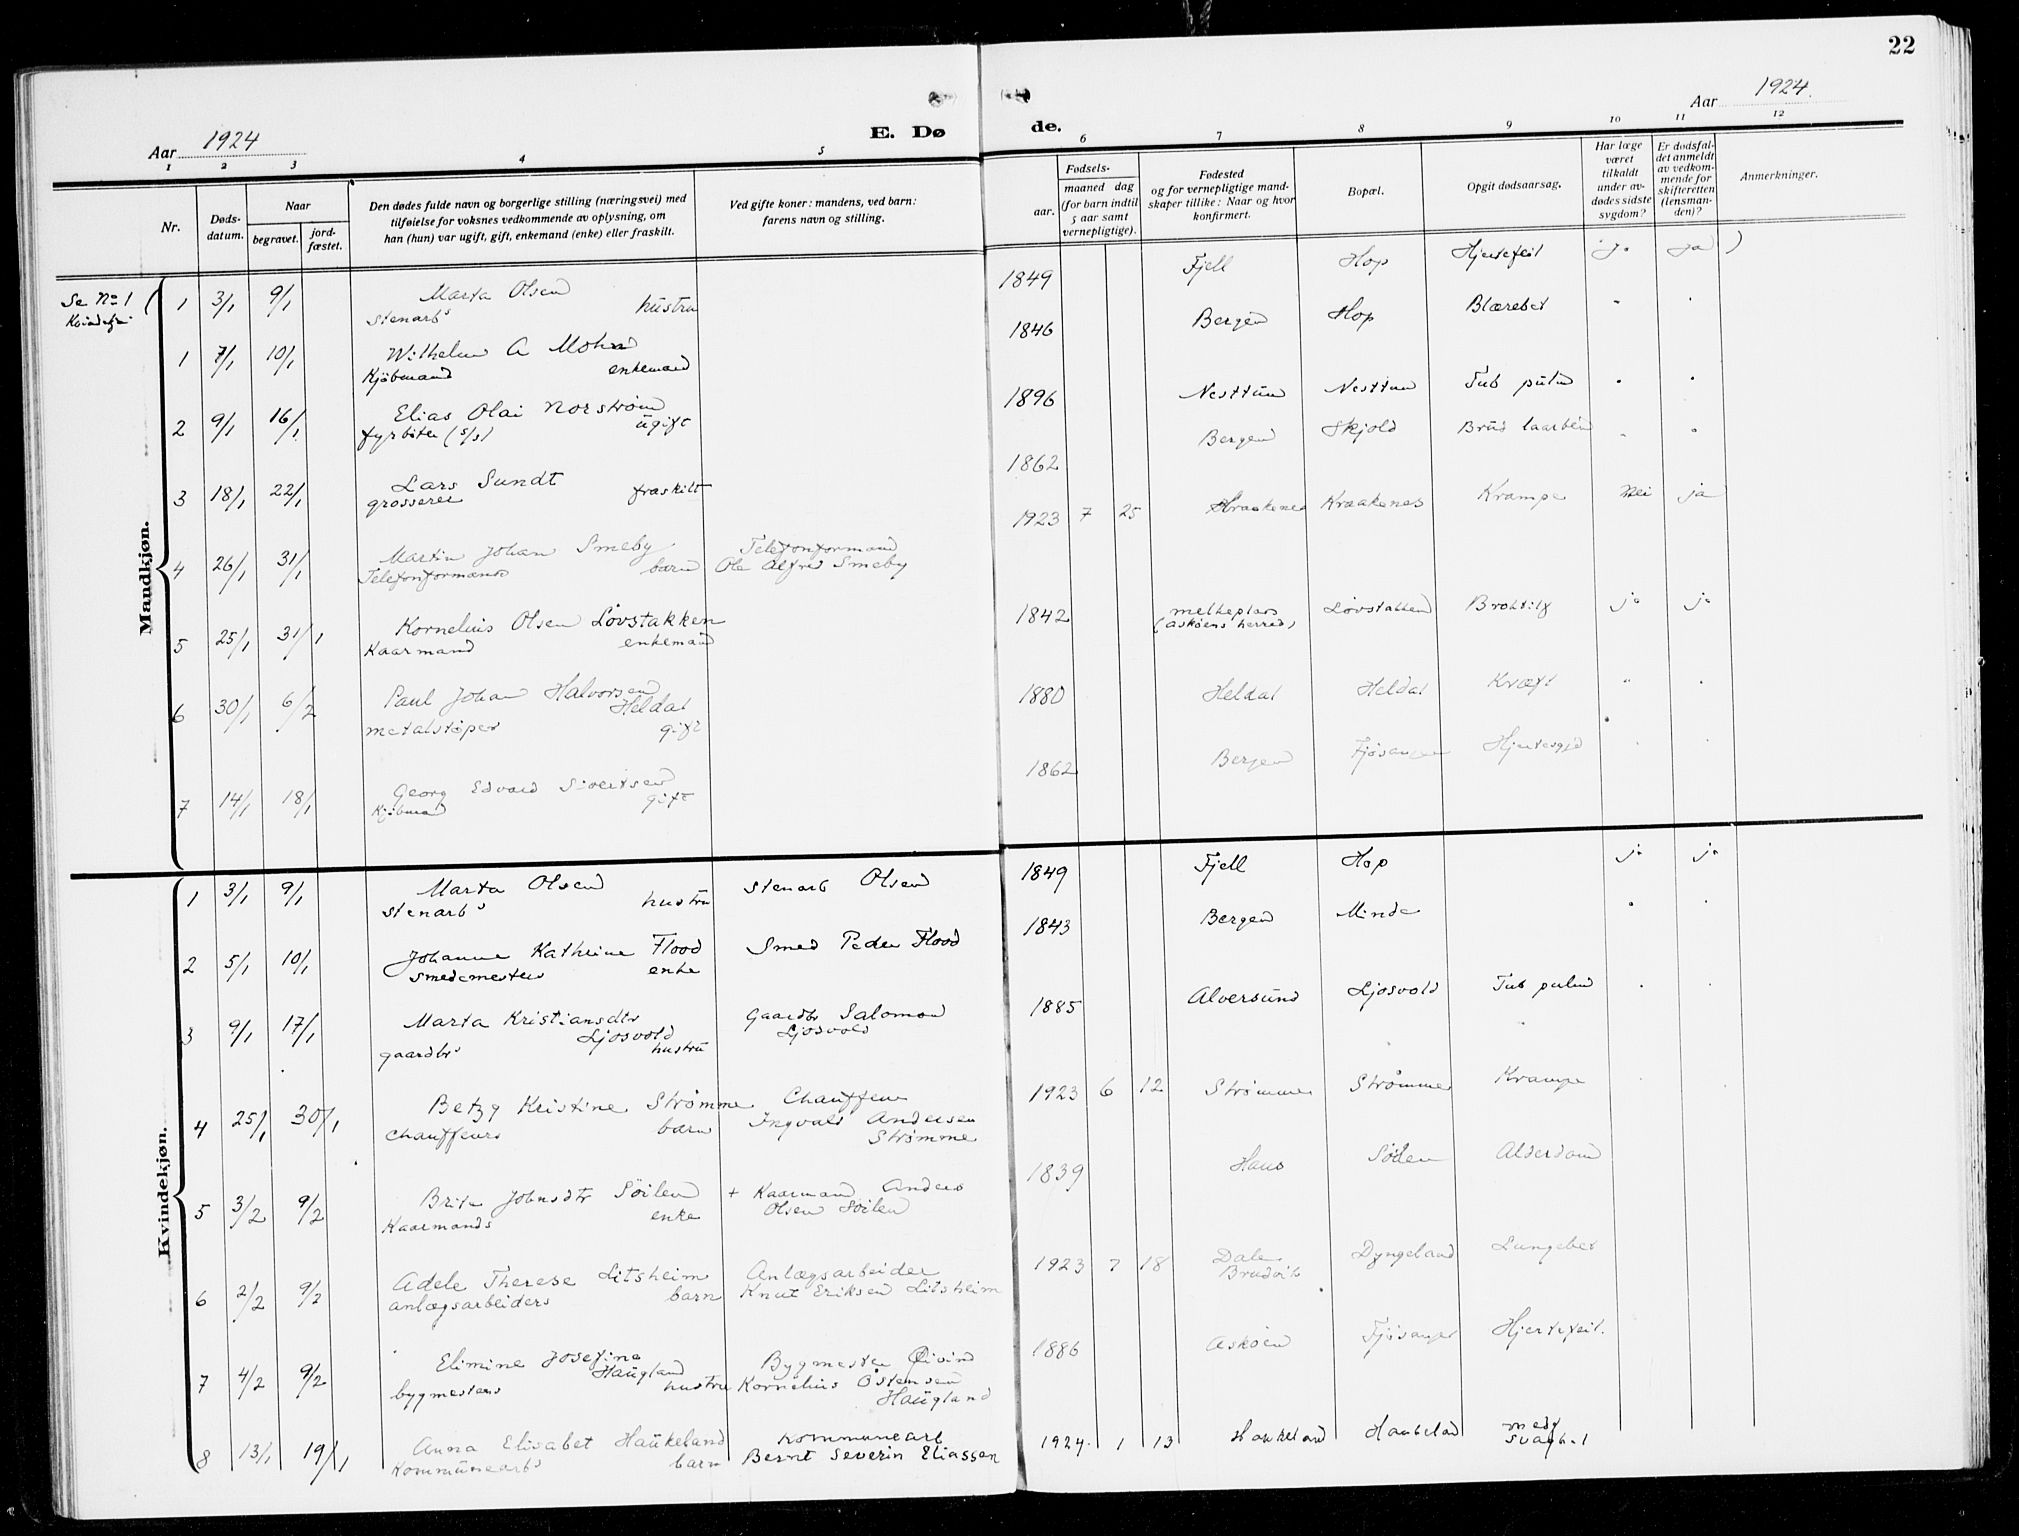 22
Aar 1924
E. Dø
de.
Aar 1924.
1 2 3 4 5 6 7 8 9 10 11 12
Nr.
Døds-
datum.
Naar
begravet.
jord-
fæstet.
Den dødes fulde navn og borgerlige stilling (næringsvei) med
tilføielse for voksnes vedkommende av oplysning, om
han (hun) var ugift, gift, enkemand (enke) eller fraskilt.
Ved gifte koner: mandens, ved barn:
farens navn og stilling.
Fødsels-
aar.
maaned dag
(for barn indtil
5 aar samt
vernepligtige).
Fødested
og for vernepligtige mand-
skaper tillike: Naar og hvor
konfirmert.
Bopæl.
Opgit dødsaarsag.
Har læge
været
tilkaldt
under av-
dødes sidste
sygdom?
Er dødsfal-
det anmeldt
av vedkom-
mende for
skifteretten
(lensman-
den)?
Anmerkninger.
Mandkjøn.
Se No 1
( 1 3/1 9/1 Marta Olsen 1849 Fjell Hop Hjertefeil ja ja )
stenarbs hustru
1 7/1 10/1 Wilhelm A Mohn 1846 Bergen Hop Blærebet " "
Kjøbmand enkemand
2 9/1 16/1 Elias Olai Norstrøm 1896 Nesttun Nesttun Tub pulm " "
fyrbøter (s/s) ugift
3 18/1 22/1 Lars Sundt 1862 Bergen Skjold Brud laarben " "
grosserer fraskilt
4 26/1 31/1 Martin Johan Smeby Telefonformand 1923 7 25 Kraakenes Kraakenes Krampe Nei ja
Telefonformands barn Ole Alfred Smeby
5 25/1 31/1 Kornelius Olsen Løvstakken 1842 melkeplass Løvstakken ja ja
Kaarmand enkemand (Askøens herred)
6 30/1 6/2 Paul Johan Halvorsen 1880 Heldal Heldal Kræft " "
Heldal
metalstøper gift
7 14/1 18/1 Georg Edvard Sivertsen 1862 Bergen Fjøsanger " "
Kjøbmand gift
Kvindekjøn.
1 3/1 9/1 Marta Olsen stenarb Olsen 1849 Fjell Hop ja ja
stenarbs hustru
2 5/1 10/1 Johanne Kathrine Flood Smed Peder Flood 1843 Bergen Minde " "
smedemesters enke
3 9/1 17/1 Marta Kristiansdtr Gaardbr Salomon 1885 Alversund Ljosvold Tub pulm " "
Ljosvold Ljosvold
gaardbrs hustru
4 25/1 30/1 Betzy Kristine Strømme Chauffeur 1923 6 12 Strømme Strømme Krampe
chauffeurs barn Ingvald Andersen
Strømme
5 3/2 9/2 Brita Johnsdtr Søilen + Kaarmand Anders 1839 Haus Søilen Alderdom
Kaarmands enke Olsen Søilen
6 2/2 9/2 Adele Therese Litsheim Anlægsarbeider 1923 7 18 Dale Dyngeland Lungebet
anlægsarbeiders barn Knut Eriksen Litsheim Bruvik
7 4/2 9/2 Elimine Josefine Bygmester Øivind 1886 Askøen Fjøsanger Hjertefeil.
Haugland
bygmesters hustru Kornelius Østensen
Haugland
8 13/1 19/1 Anna Elisabet Haukeland Kommunearb 1924 1 13 Haukeland Haukeland medf
Kommunearbs barn Bernt Severin Eliassen svaghet